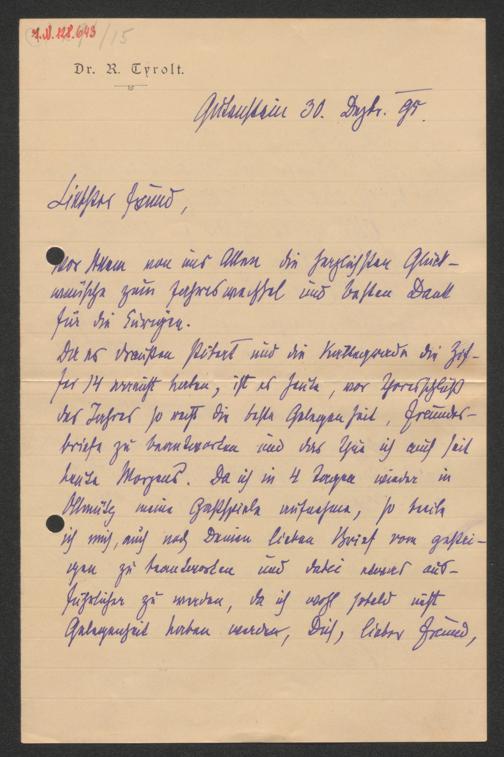 I.N. 128.643
/15
Dr. R. Tyrolt.
Gutenstein 30. Dezbr. 95.
Liebster Freund,
Vor Allem von uns Allen die herzlichsten Glück-
wünsche zum Jahreswechsel und besten Dank
für die Eurigen.
Da es draußen stöbert und die Kältegrade die Zif-
fer 14 erreicht haben, ist es heute, vor Thoresschluß
des Jahres so recht die beste Gelegenheit, Freundes-
briefe zu beantworten und das thue ich auch seit
heute Morgens. Da ich in 4 Tagen wieder in
Olmütz meine Gastspiele aufnehme, so beeile
ich mich, auch noch Deinen lieben Brief vom gestri-
gen zu beantworten und dabei etwas aus-
führlicher zu werden, da ich wohl sobald nicht
Gelegenheit haben werde, Dich, lieber Freund,